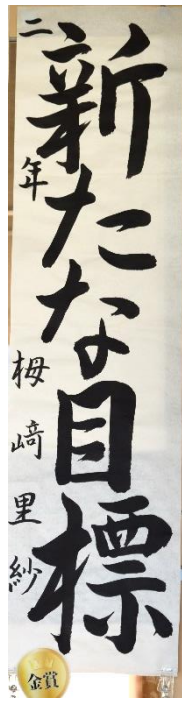 新たな目標
二年 栂﨑里紗
金賞